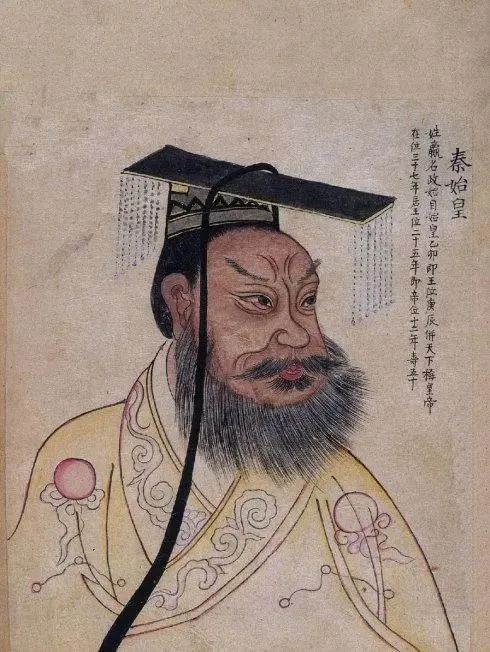 秦始皇
姓嬴名政始自始皇乙卯即王位庚辰併天下称皇帝
在位三十七年居王位二十五年即帝位十二年寿五十